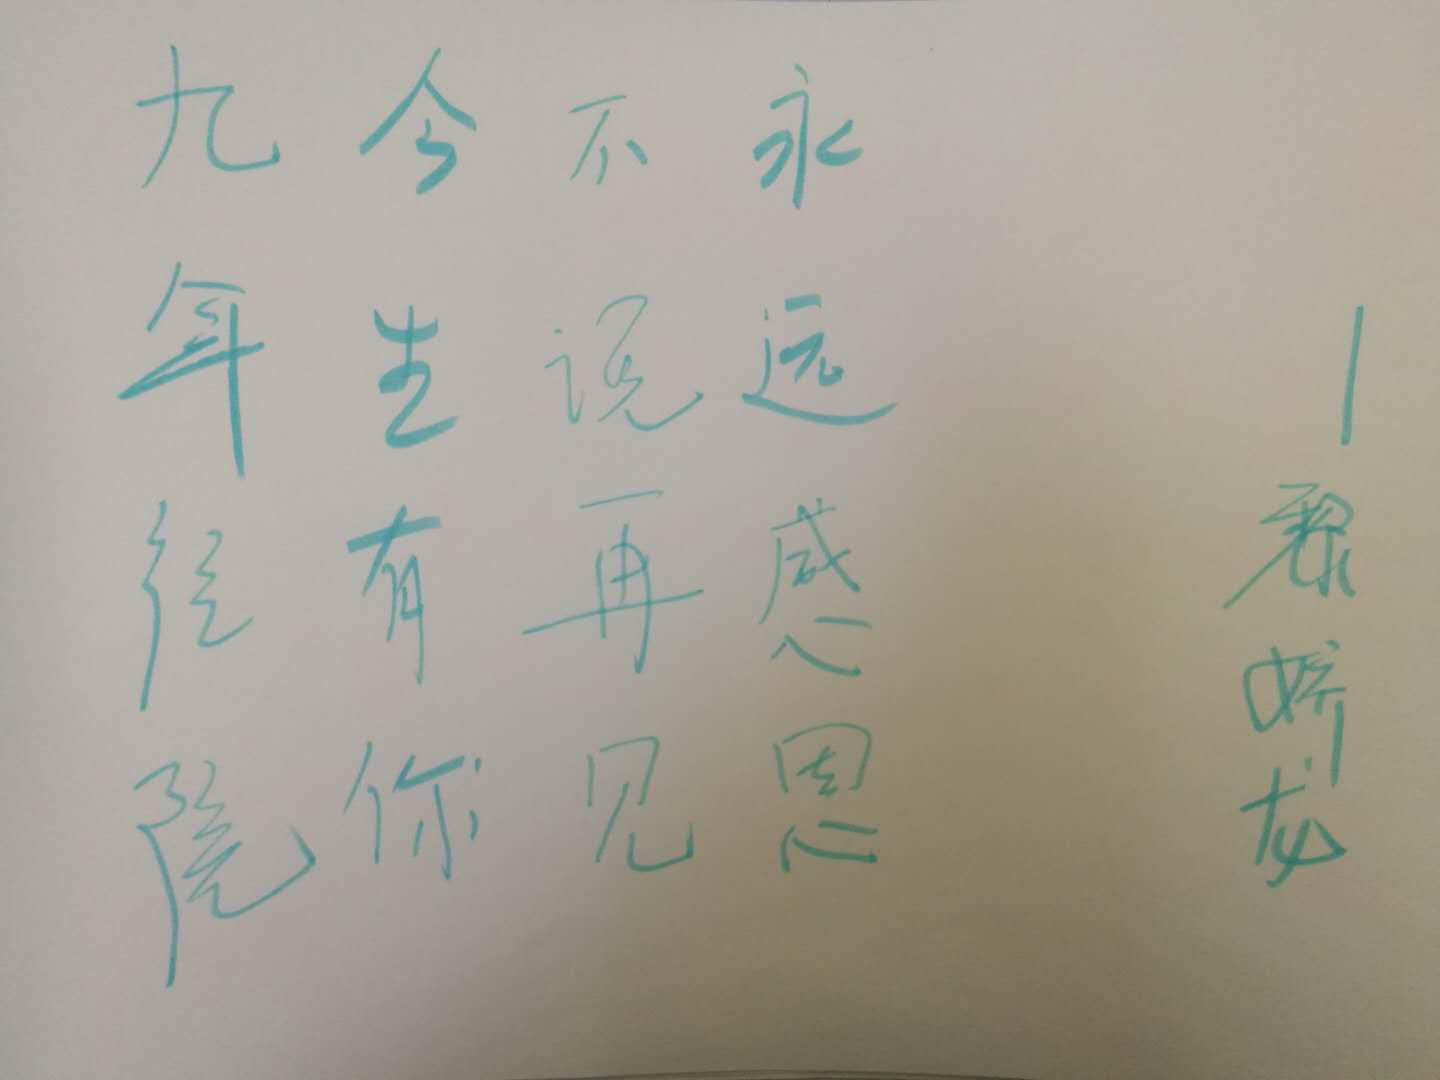 九年经院
今生有你
不说再见
永远感恩
—娇龙